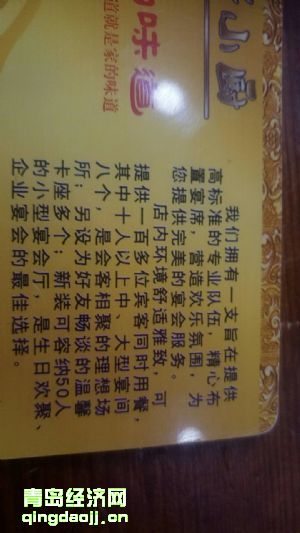 小厨
的味道
道就是家的味道
我们拥有一支旨在提供
高标准的专业队伍，精心布
置宴席，营造欢乐氛围，为
您提供完美的宴会服务。
店内环境舒适雅致，可
提供一百多位宾客同时用餐，
其中十人以上中、大型宴间
八个，是会客相聚的理想场
所；另设为好友畅谈的温馨
卡座多个；新装可容纳50人
的小型宴会厅，是生日欢聚、
企业宴会的最佳选择。
青岛经济网
qingdaojj.cn